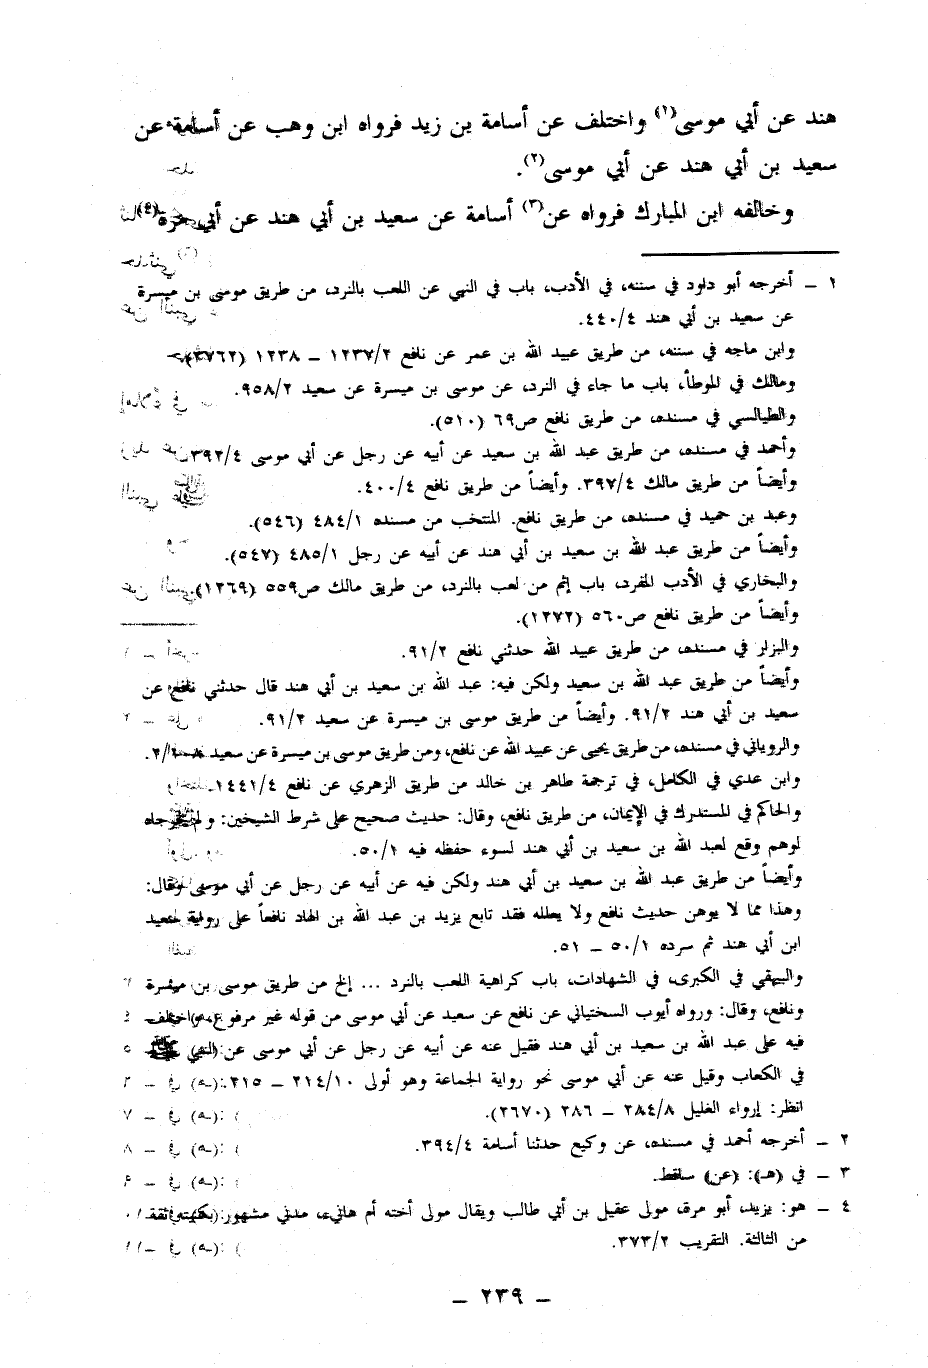 هند عن أبي موسى(١) واختلف عن أسامة بن زيد فرواه ابن وهب عن أسامة عن
سعيد بن أبي هند عن أبي موسى(٢).
وخالفه ابن المبارك فرواه عن(٣) أسامة عن سعيد بن أبي هند عن أبي مرة(٤)
١ - أخرجه أبو داود في سننه، في الأدب، باب في النهي عن اللعب بالنرد، من طريق موسى بن ميسرة
عن سعيد بن أبي هند ٤٤٠/٤.
وابن ماجه في سننه، من طريق عبيد الله بن عمر عن نافع ١٢٣٧/٢ - ١٢٣٨ (٣٧٦٢).
ومالك في الموطأ، باب ما جاء في النرد، عن موسى بن ميسرة عن سعيد ٩٥٨/٢.
والطيالسي في مسنده، من طريق نافع ص٦٩ (٥١٠).
وأحمد في مسنده، من طريق عبد الله بن سعيد عن أبيه عن رجل عن أبي موسى ٣٩٢/٤
وأيضاً من طريق مالك ٣٩٧/٤. وأيضاً من طريق نافع ٤٠٠/٤.
وعبد بن حميد في مسنده، من طريق نافع. المنتخب من مسنده ٤٨٤/١ (٥٤٦).
وأيضاً من طريق عبد الله بن سعيد بن أبي هند عن أبيه عن رجل ٤٨٥/١ (٥٤٧).
والبخاري في الأدب المفرد، باب إثم من لعب بالنرد، من طريق مالك ص٥٥٩ (١٢٦٩).
وأيضاً من طريق نافع ص٥٦٠ (١٢٧٢).
والبزار في مسنده، من طريق عبيد الله حدثني نافع ٩١/٢.
وأيضاً من طريق عبد الله بن سعيد ولكن فيه: عبد الله بن سعيد بن أبي هند قال حدثني نافع عن
سعيد بن أبي هند ٩١/٢. وأيضاً من طريق موسى بن ميسرة عن سعيد ٩١/٢.
والروياني في مسنده، من طريق يحيى عن عبيد الله عن نافع، ومن طريق موسى بن ميسرة عن سعيد
وابن عدي في الكامل، في ترجمة طاهر بن خالد من طريق الزهري عن نافع ١٤٤١/٤
والحاكم في المستدرك في الإيمان، من طريق نافع، وقال: حديث صحيح على شرط الشيخين: ولم يخرجاه
لوهم وقع لعبد الله بن سعيد بن أبي هند لسوء حفظه فيه ٥٠/١.
وأيضاً من طريق عبد الله بن سعيد بن أبي هند ولكن فيه عن أبيه عن رجل عن أبي موسى وقال:
وهذا مما لا يوهن حديث نافع ولا يعلله فقد تابع يزيد بن عبد الله بن الهاد نافعاً على رواية سعيد
ابن أبي هند ثم سرده ٥٠/١ - ٥١.
والبيهقي في الكبرى، في الشهادات، باب كراهية اللعب بالنرد ... إلخ من طريق موسى بن ميسرة
ونافع، وقال: ورواه أيوب السختياني عن نافع عن سعيد عن أبي موسى من قوله غير مرفوع، واختلف
فيه على عبد الله بن سعيد بن أبي هند فقيل عنه عن أبيه عن رجل عن أبي موسى عن النبي ﷺ
في الكعاب وقيل عنه عن أبي موسى نحو رواية الجماعة وهو أولى ٢١٤/١٠ - ٢١٥.
انظر: إرواء الغليل ٢٨٤/٨ - ٢٨٦ (٢٦٧٠).
٢ - أخرجه أحمد في مسنده، عن وكيع حدثنا أسامة ٣٩٤/٤.
٣ - في (هـ): (عن) ساقط.
٤ - هو: يزيد، أبو مرة، مولى عقيل بن أبي طالب ويقال مولى أخته أم هانىء، مدني مشهور بكنيته ثقة
من الثالثة. التقريب ٣٧٣/٢.
- ٢٣٩ -